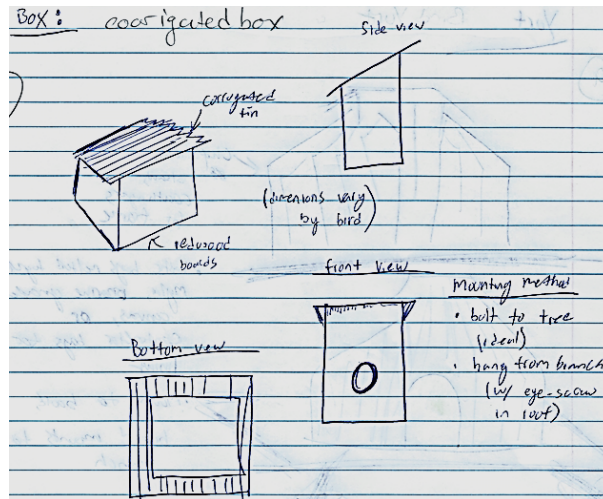 Box: coorigated box
Side view
corrugated
tin
(dimensions vary
by bird)
redwood
boards
front view
Mounting method
• bolt to tree
(ideal)
• hang from branch
(w/ eye-screw
in roof)
Bottom view